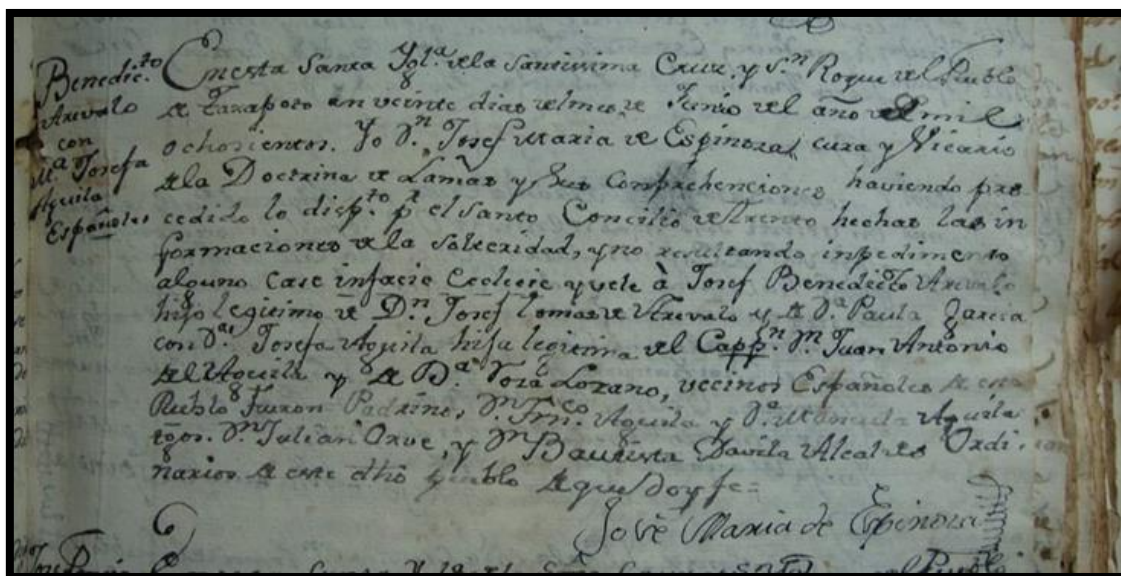 Benedic.to
Arevalo
con
M.a Josefa
Aguila
Españoles
En esta Santa Ygl.a de la Santissima Cruz, y S.n Roque del Pueblo
de Tarapoto en veinte dias del mes de Junio del año de mil
ochosientos. Yo D.n Josef Maria de Espinoza cura y Vicario
de la Doctrina de Lamas y sus Comprehenciones haviendo pre
cedido lo disp.to p.r el Santo Concilio de Trento hechas las in
formaciones de la solteridad, y no resultando inpedimento
alguno Case infacie Eccleсie y vele à Josef Benedicto Arevalo
hijo legitimo de D.n Josef Tomas de Arevalo y de D.a Paula Garcia
con D.a Josefa Aguila hija legitima del Capp.n D.n Juan Antonio
del Aguila y de D.a Lozano, vecinos Españoles de este
Pueblo Fueron Padrinos D.n Fran.co Aguila y D.a Manuela Aguila
tgos. D.n Julian Orve, y D.n Bautista Davila Alcaldes Ordi
narios de este dho pueblo de que doy fe=
Jose Maria de Espinoza